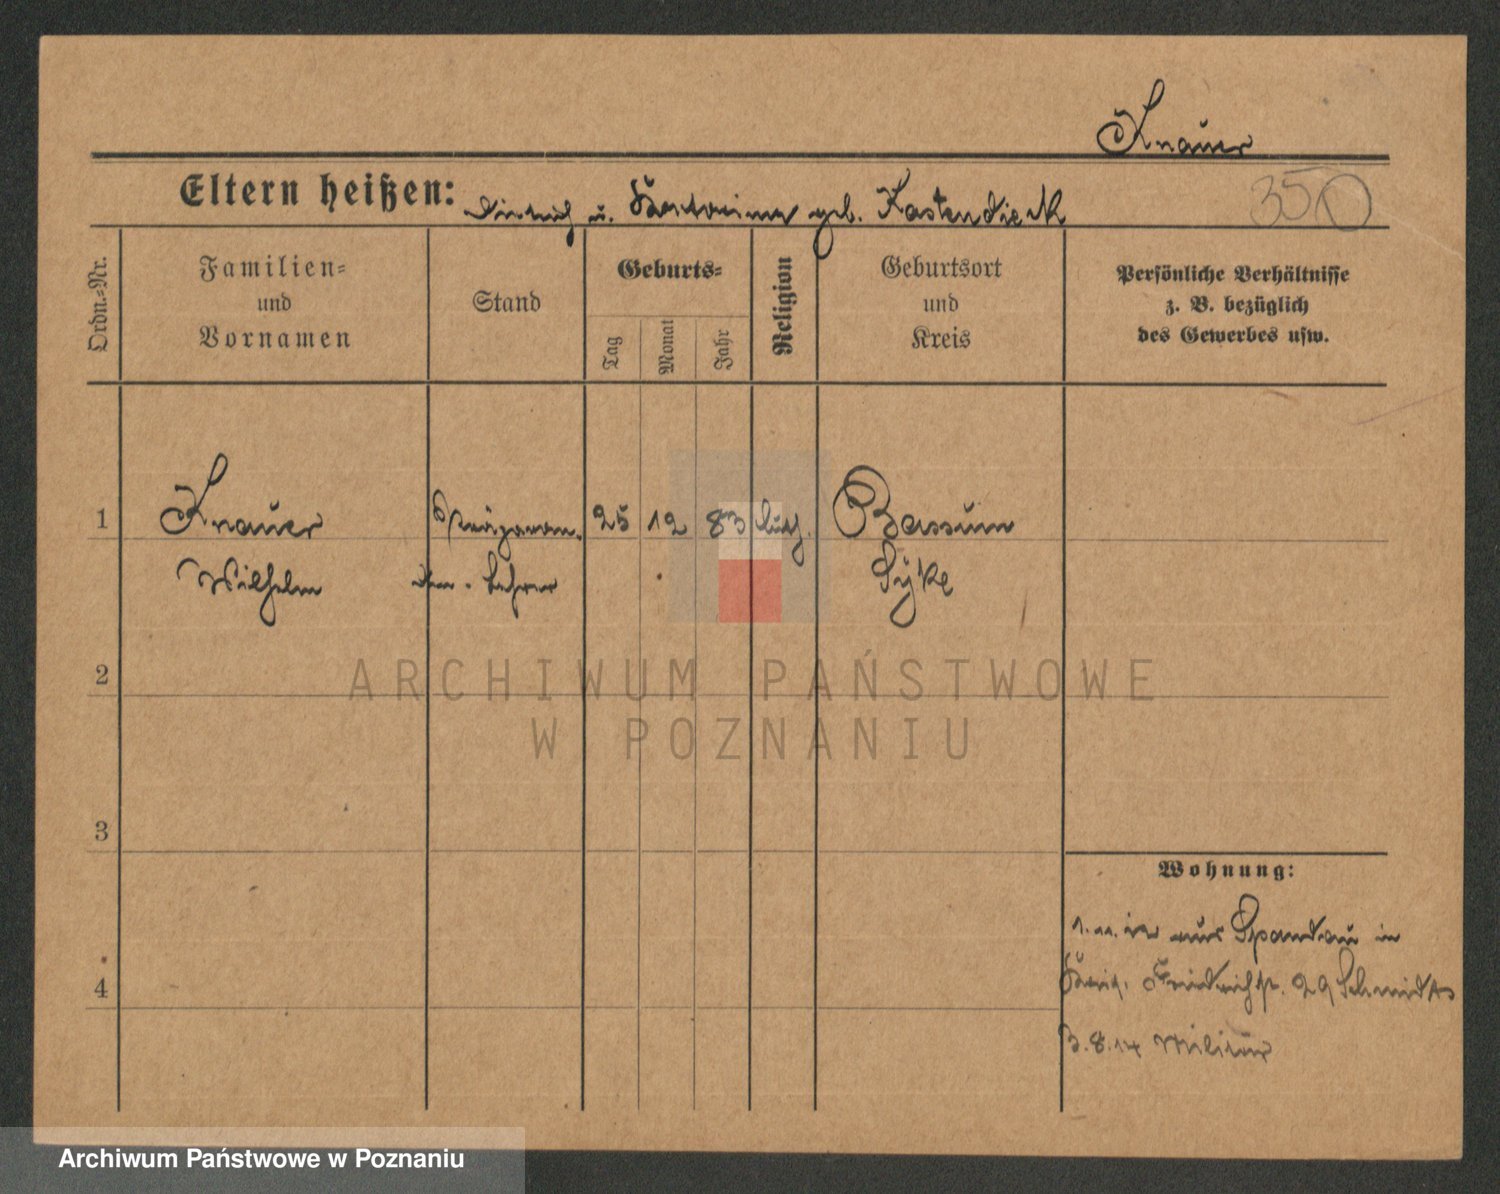 Knauer
Eltern heißen: Dietrich u. geb. Kastendieck
350
Ordn.-Nr.
Familien-
und
Vornamen
Stand
Geburts-
Tag
Monat
Jahr
Religion
Geburtsort
und
Kreis
Persönliche Verhältnisse
z. B. bezüglich
des Gewerbes usw.
1
Knauer
Präparan-
25
12
83
luth.
Bassum
Wilhelm
den-Lehrer
Syke
2
ARCHIWUM PAŃSTWOWE
W POZNANIU
3
Wohnung:
aus Spandau in
4
Friedrichstr. 29 Schmidt
3.8.14 Militär
Archiwum Państwowe w Poznaniu